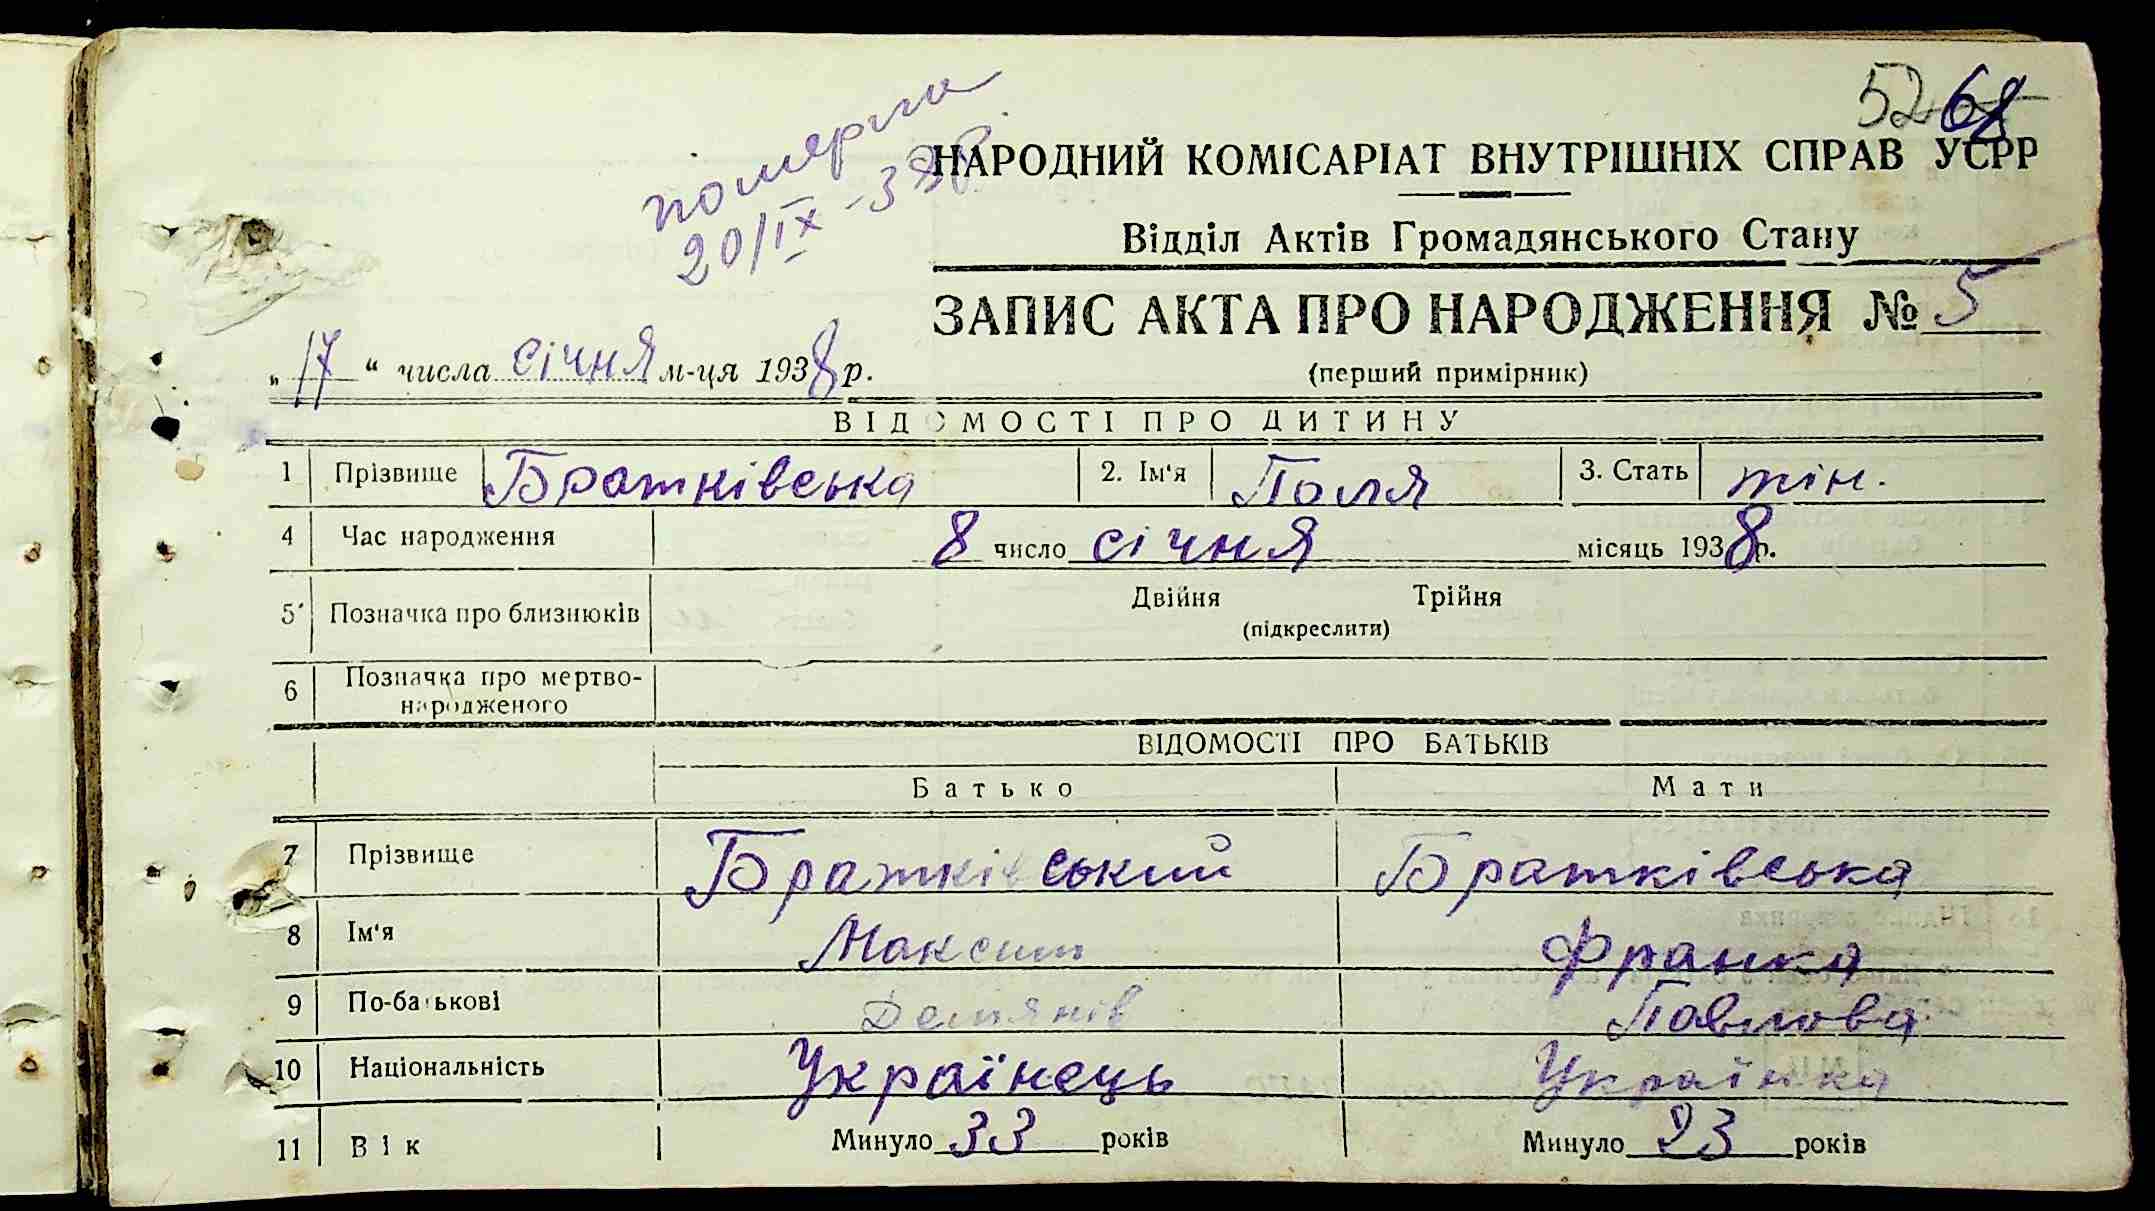 52 68
померла
20/IX-38р.
НАРОДНИЙ КОМІСАРІАТ ВНУТРІШНІХ СПРАВ УСРР
Відділ Актів Громадянського Стану
ЗАПИС АКТА ПРО НАРОДЖЕННЯ № 5
„17“ числа січня м-ця 1938 р.
(перший примірник)
ВІДОМОСТІ ПРО ДИТИНУ
1 Прізвище Братківська 2. Ім'я Поля 3. Стать жін.
4 Час народження 8 число січня місяць 1938 р.
5 Позначка про близнюків Двійня Трійня
(підкреслити)
6 Позначка про мертво-
народженого
ВІДОМОСТІ ПРО БАТЬКІВ
Батько Мати
7 Прізвище Братківський Братківська
8 Ім'я Максим Франка
9 По-батькові Демянів Павлова
10 Національність Українець Українка
11 Вік Минуло 33 років Минуло 23 років